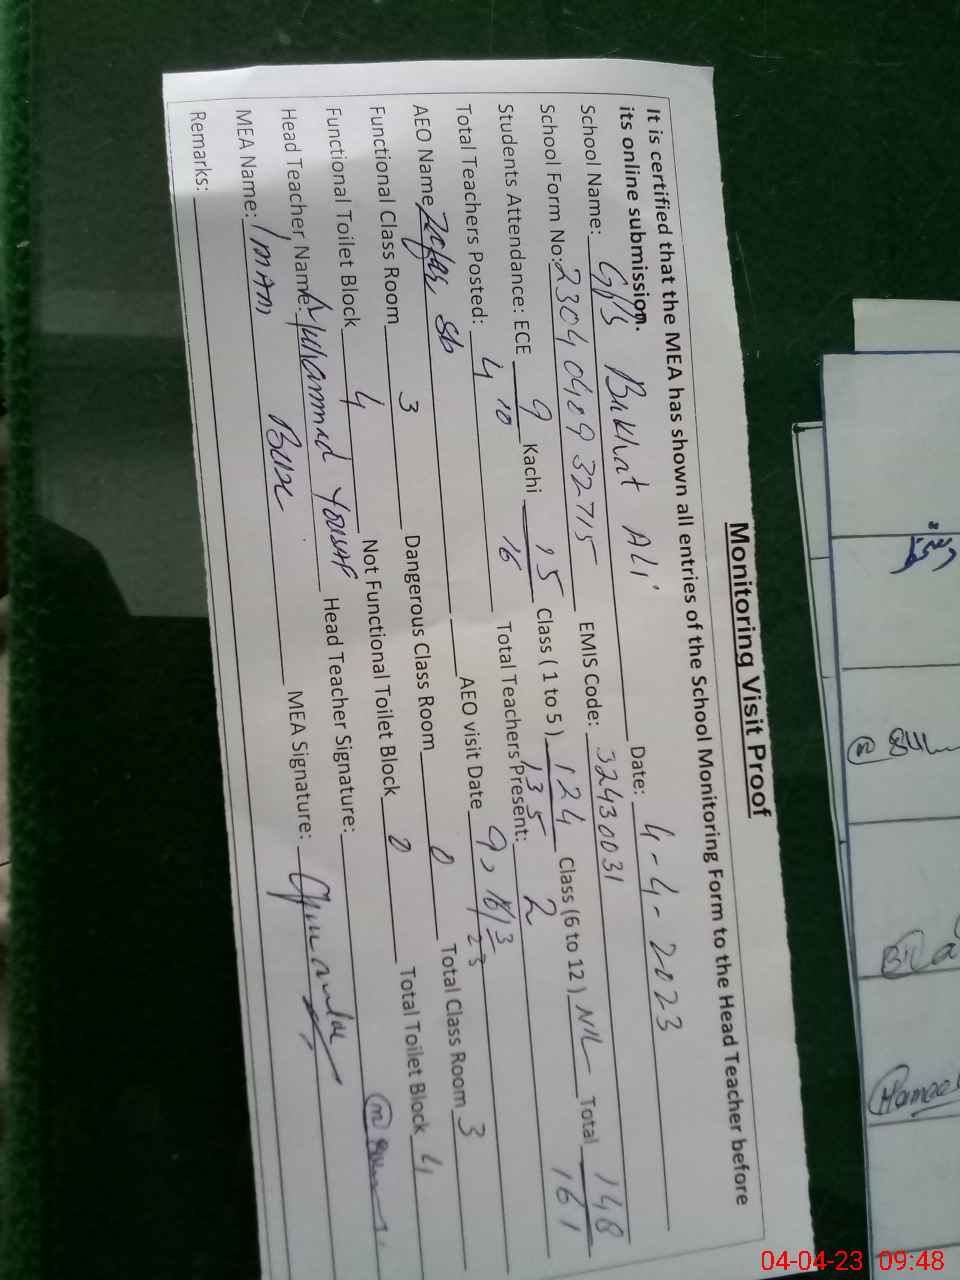 Monitoring Visit Proof
It is certified that the MEA has shown all entries of the School Monitoring Form to the Head Teacher before
its online submission.
School Name: G/P/S Bakhat Ali Date: 4-4-2023
School Form No: 2304040932715 EMIS Code: 32430031
Students Attendance: ECE 9 Kachi 15 Class ( 1 to 5 ) 124 Class (6 to 12 ) NIL Total 148
10 16 135 161
Total Teachers Posted: 4 Total Teachers Present: 2
AEO Name Zafar sb AEO visit Date 9, 18/3/23
Functional Class Room 3 Dangerous Class Room 0 Total Class Room 3
Functional Toilet Block 4 Not Functional Toilet Block 0 Total Toilet Block 4
Head Teacher Name: Muhammad Yousaf Head Teacher Signature:
MEA Name: Imam Bux MEA Signature:
Remarks:
04-04-23 09:48